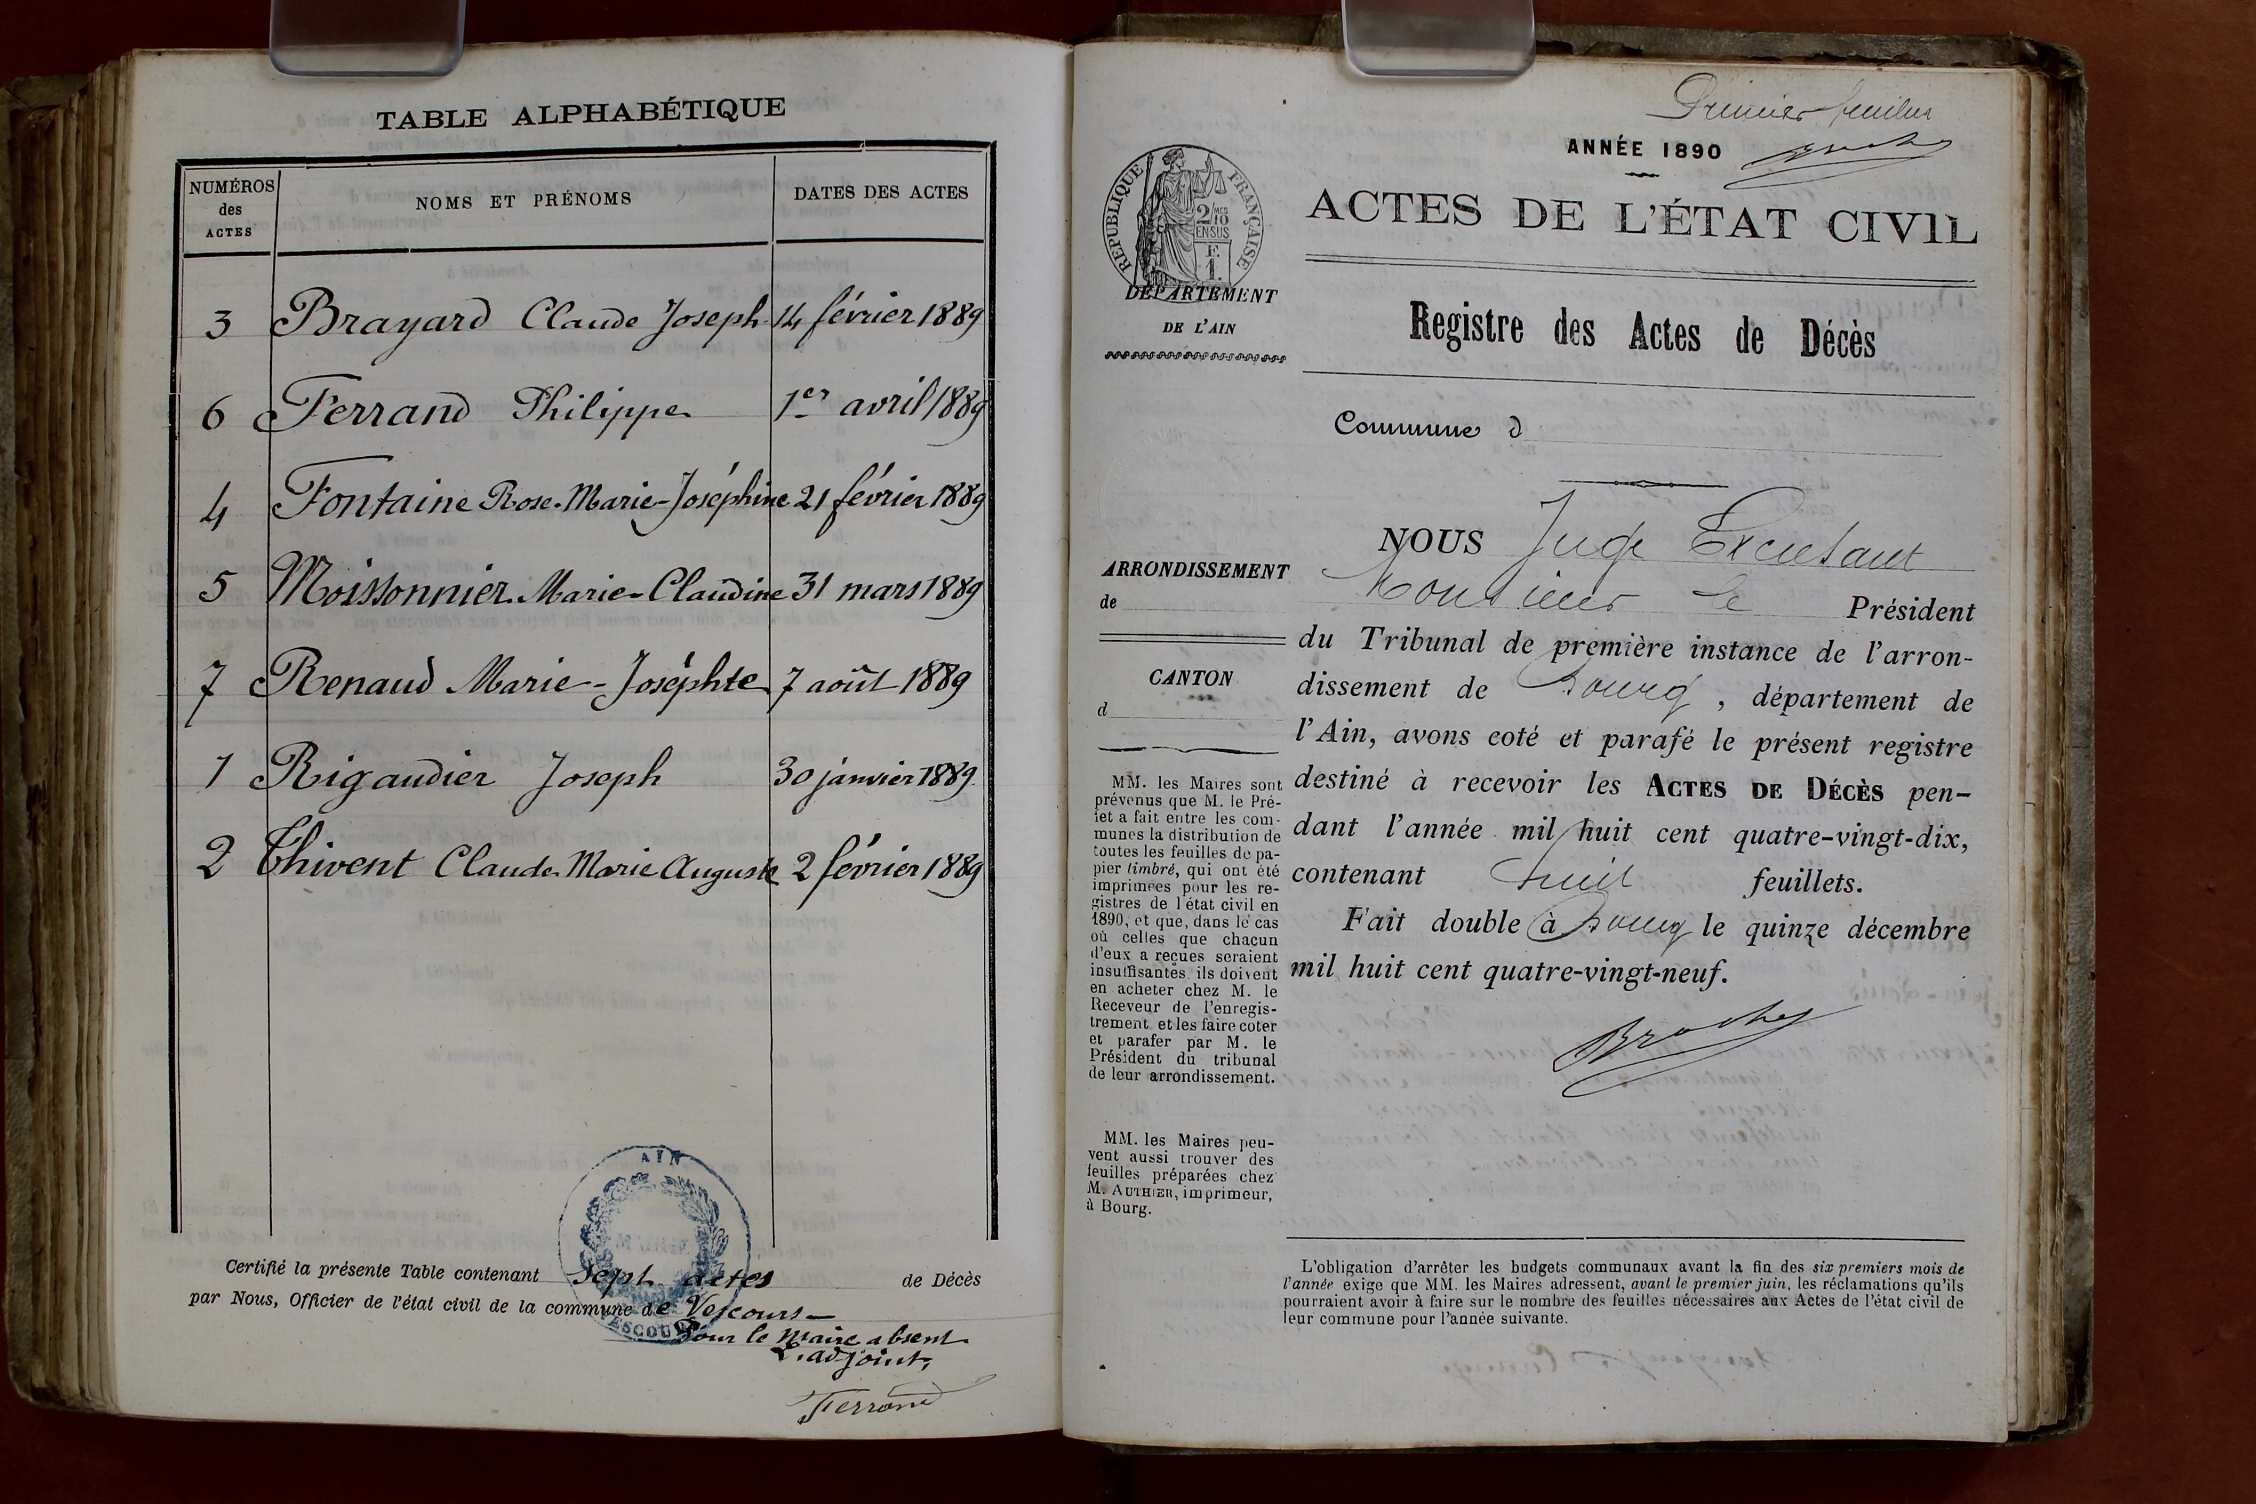 TABLE ALPHABÉTIQUE
NUMÉROS des ACTES NOMS ET PRÉNOMS DATES DES ACTES
3 Brayard Claude Joseph 14 février 1889
6 Ferrand Philippe 1er avril 1889
4 Fontaine Rose-Marie-Joséphine 21 février 1889
5 Moissonnier Marie-Claudine 31 mars 1889
7 Renaud Marie-Joséphte 7 août 1889
1 Rigaudier Joseph 30 janvier 1889
2 Thivent Claude Marie Auguste 2 février 1889
AIN
MAIRIE
VESCOURS
Certifié la présente Table contenant Sept actes de Décès
par Nous, Officier de l'état civil de la commune de Vescours
Pour le Maire absent
L'adjoint,
Ferrand
Premier
ANNÉE 1890
RÉPUBLIQUE FRANÇAISE
2/10 EN SUS
F.
1.
ACTES DE L'ÉTAT CIVIL
DÉPARTEMENT
DE L'AIN
Registre des Actes de Décès
Commune d
ARRONDISSEMENT
de
CANTON
d
NOUS Juge
Monsieur le Président
du Tribunal de première instance de l'arron-
dissement de Bourg, département de
l'Ain, avons coté et parafé le présent registre
destiné à recevoir les ACTES DE DÉCÈS pen-
dant l'année mil huit cent quatre-vingt-dix,
contenant huit feuillets.
Fait double à Bourg le quinze décembre
mil huit cent quatre-vingt-neuf.
MM. les Maires sont
prévenus que M. le Pré-
fet a fait entre les com-
munes la distribution de
toutes les feuilles de pa-
pier timbré, qui ont été
imprimées pour les re-
gistres de l'état civil en
1890, et que, dans le cas
où celles que chacun
d'eux a reçues seraient
insuffisantes ils doivent
en acheter chez M. le
Receveur de l'enregis-
trement et les faire coter
et parafer par M. le
Président du tribunal
de leur arrondissement.
MM. les Maires peu-
vent aussi trouver des
feuilles préparées chez
M. AUTHIER, imprimeur,
à Bourg.
L'obligation d'arrêter les budgets communaux avant la fin des six premiers mois de
l'année exige que MM. les Maires adressent, avant le premier juin, les réclamations qu'ils
pourraient avoir à faire sur le nombre des feuilles nécessaires aux Actes de l'état civil de
leur commune pour l'année suivante.